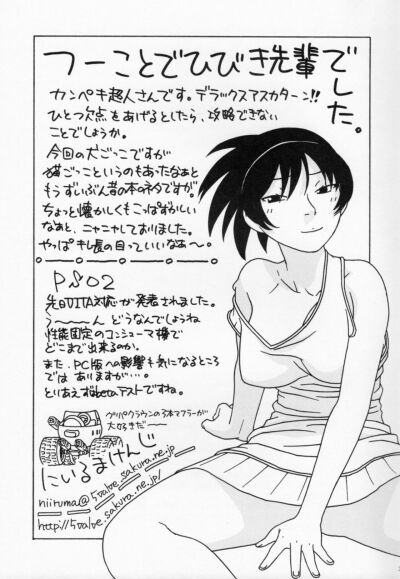 つーことでひびき先輩でした。
カンペキ超人さんです。デラックスアスカターン!!
ひとつ欠点をあげるとしたら、攻略できない
ことでしょうか。
今回の犬ごっこですが
猫ごっこというのもあったなぁと
もうずいぶん昔の本のネタですが。
ちょっと懐かしくもこっぱずかしい
なぁと、ニャニャしておりました。
やっぱキレ長の目っていいなぁ〜。
PSO2
先日VITA対応が発表されました。
う〜〜ん どうなんでしょうね
性能固定のコンシューマ機で
どこまで出来るのか。
また、PC版への影響も気になるところ
ではありますが…。
とりあえずβetaテストですね。
クラウンの3本マフラーが
大好きだ〜〜
にいるまけんじ
niiruma@5valve.sakura.ne.jp
http://5valve.sakura.ne.jp/